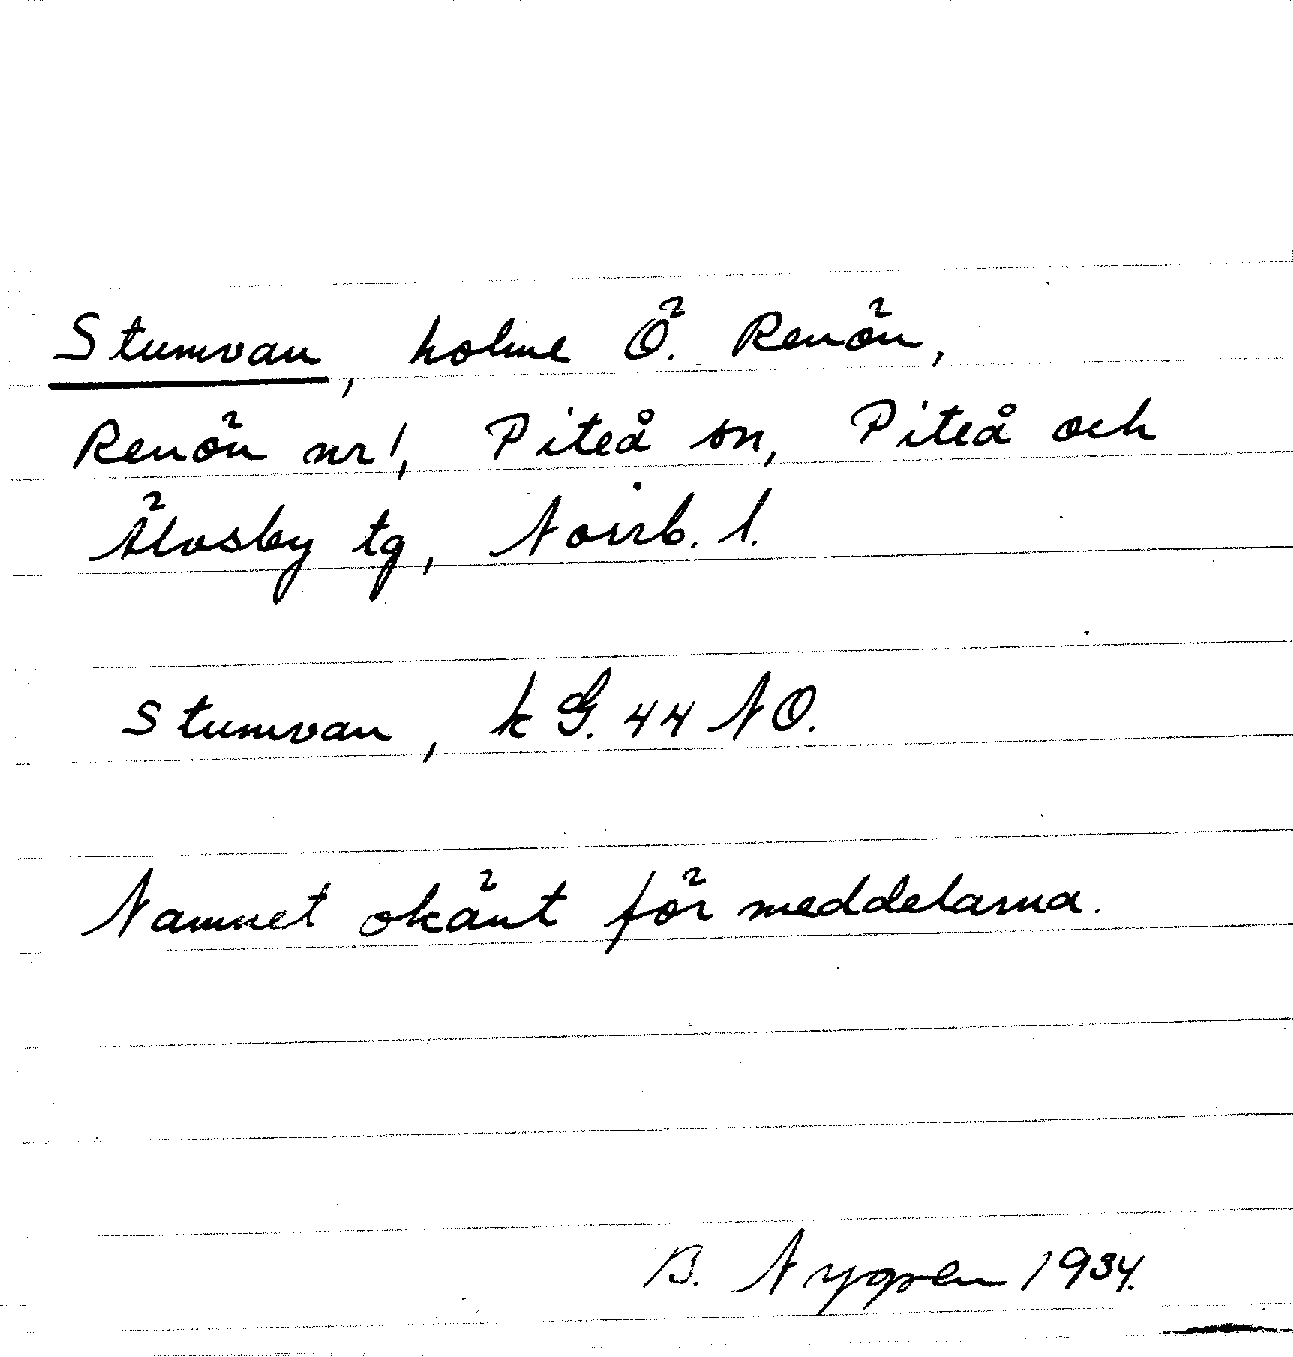 Stumvan, holme Ö. Renön,
Renön nr 1, Piteå sn, Piteå och
Älvsby tg, Norrb. l.
Stumvan, k G. 44 NO.
Namnet okänt för meddelarna.
B. Nygren 1934.